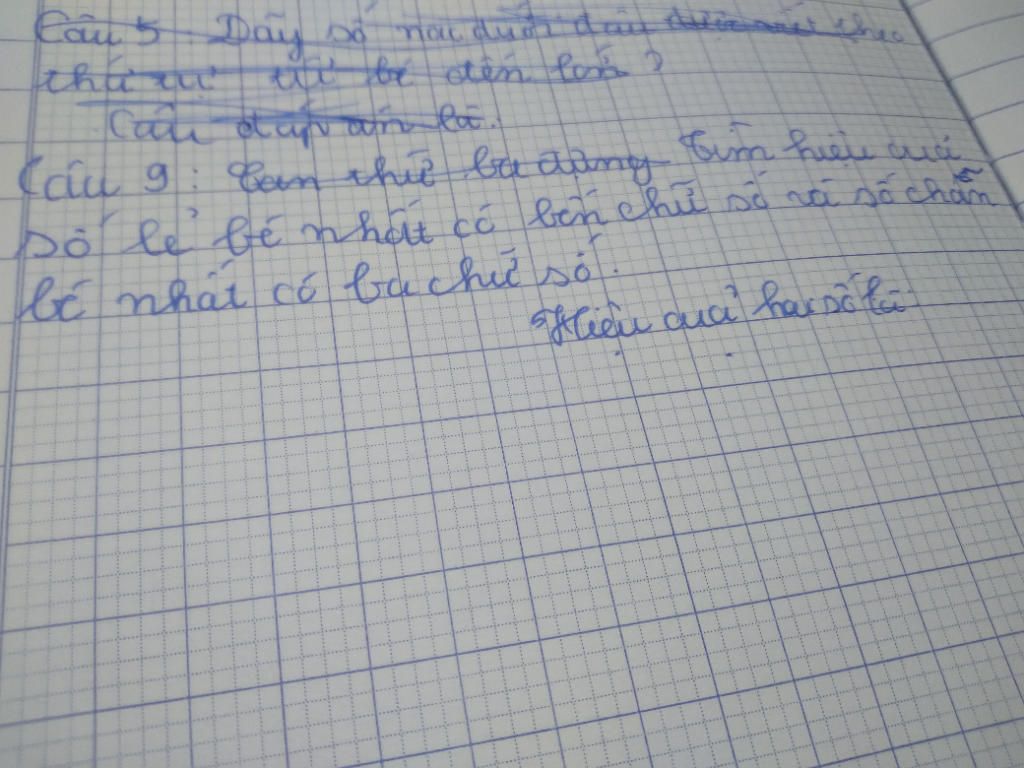 Câu 5 Dãy số nào dưới đây được viết theo
thứ tự từ bé đến lớn?
Câu đáp án là.
Câu 9: ba Tìm hiệu của
số lẻ bé nhất có bốn chữ số và số chẵn
bé nhất có ba chữ số.
Hiệu của hai số là